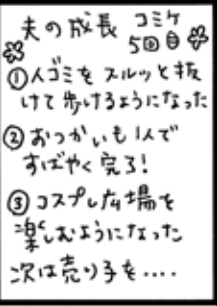 夫の成長 コミケ
5回目
①人ゴミをスルッと抜
けて歩けるようになった
②おつかいも1人で
すばやく完了!
③コスプレ広場を
楽しむようになった
次は売り子を....